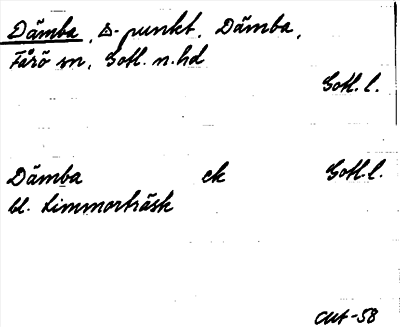 Dämba, Δ-punkt, Dämba,
Fårö sn, Gotl. n. hd
Gotl. l.
Dämba ek Gotl. l.
bl. Limmorträsk
-58